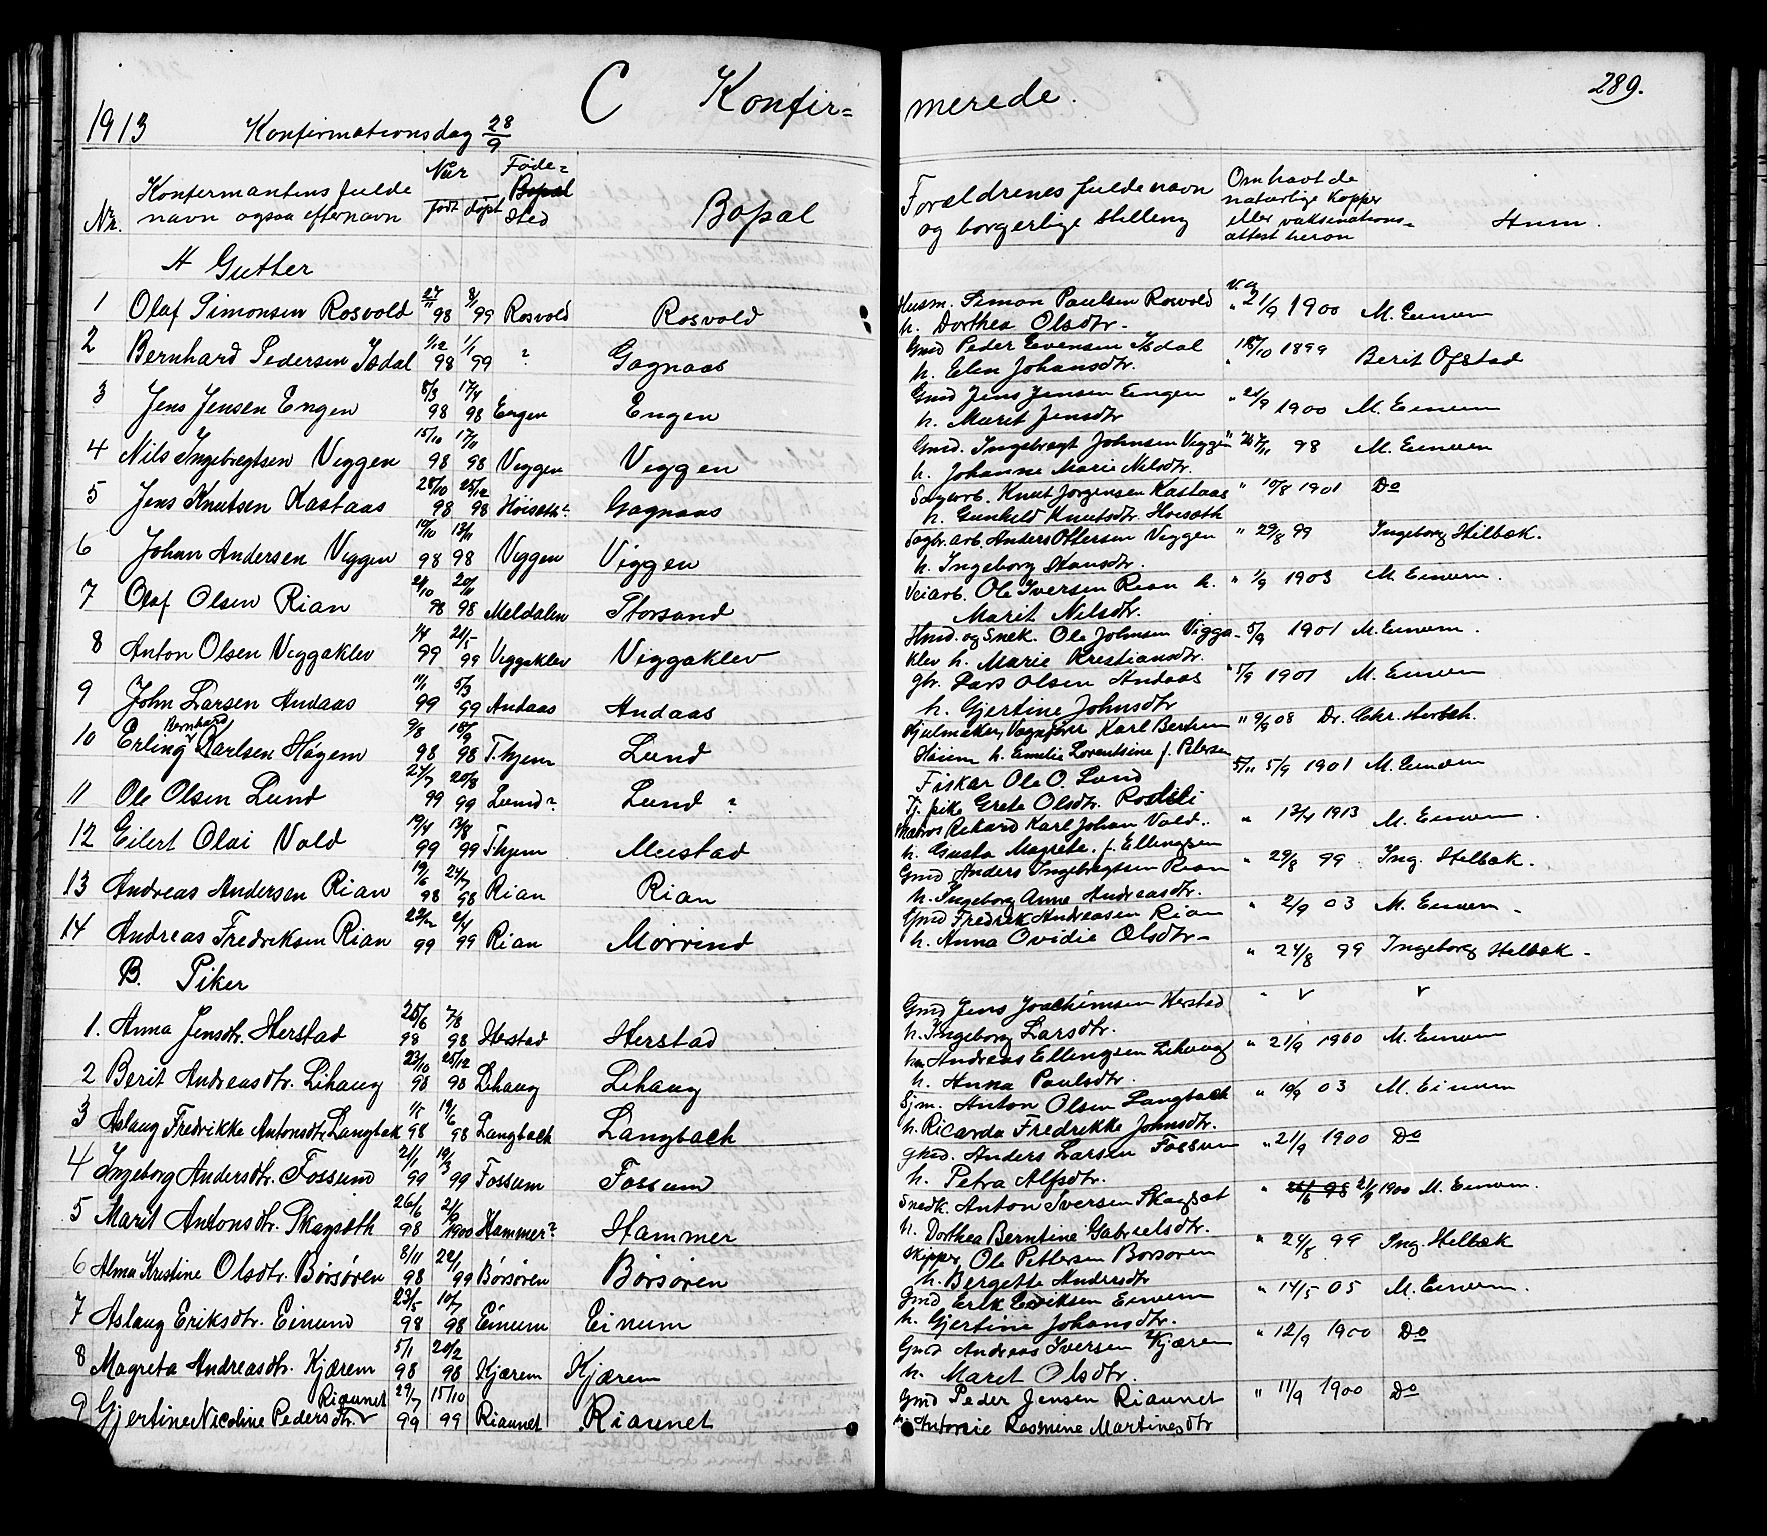 C Konfir=
1913 Konfirmationsdag 28/9
Nr. Konfirmantens fulde navn ogsaa efternavn Naar født døpt Føde= Bopæl sted Bopæl
A Gutter
1 Olaf Simonsen Rosvold 27/11 98 8/1 99 Rosvold Rosvold
2 Bernhard Pedersen Isdal 1/12 98 1/1 99 ? Gagnaas
3 Jens Jensen Engen 8/3 98 17/4 98 Engen Engen
4 Nils Ingebregtsen Viggen 15/10 98 17/11 98 Viggen Viggen
5 Jens Knutsen Kastaas 28/10 98 25/12 98 Høiseth? Gagnaas
6 Johan Andersen Viggen 19/10 98 13/11 98 Viggen Viggen
7 Olaf Olsen Rian 2/10 98 20/11 98 Meldalen Storsand
8 Anton Olsen Viggaklev 1/4 99 21/5 99 Viggaklev Viggaklev
9 John Larsen Andaas 11/1 99 5/3 99 Andaas Andaas
10 Erling Bernhard Karlsen Høgem 9/8 98 18/9 98 T.hjem Lund
11 Ole Olsen Lund 27/7 99 20/8 99 Lund? Lund ?
12 Eilert Olai Vold 19/4 99 13/8 99 T.hjem Meistad
13 Andreas Andersen Rian 19/6 98 24/7 98 Rian Rian
14 Andreas Fredriksen Rian 22/2 99 2/4 99 Rian Mørrind
B. Piker
1. Anna Jensdtr. Herstad 25/6 98 7/8 98 Herstad Herstad
2 Berit Andreasdtr. Lihaug 23/10 98 25/12 98 Lihaug Lihaug
3 Aslaug Fredrikke Antonsdtr. Langbak 1/5 98 19/6 98 Langbach Langbach
4 Ingeborg Andersdtr. Fossum 21/1 99 19/3 99 Fossum Fossum
5 Marit Antonsdtr. Skagseth 26/6 98 1900 Hammer? Hammer
6 Alma Kristine Olsdtr. Børsøren 8/11 98 22/1 99 Børsøren Børsøren
7 Aslaug Eriksdtr. Einum 23/5 98 10/7 98 Einum Einum
8 Magreta Andreasdtr. Kjærem 5/1 98 20/2 98 Kjærem Kjærem
9 Gjertine Nicoline Pedersdtr. Riaunet 29/7 99 15/10 99 Riaunet Riaunet
merede. 289.
Forældrenes fulde navn og borgerlige stilling Om havt de naturlige kopper eller vaksinations= attest herom Anm.
Husm. Simon Paulsen Rosvold v.a. " 21/9 1900 M. Einum
h. Dorthea Olsdtr.
Gmd Peder Evensen Isdal 18/10 1899 Berit Ofstad
h. Elen Johansdtr.
Gmd Jens Jensen Engen " 21/9 1900 M. Einum
h. Marit Jensdtr
Gmd. Ingebregt Johnsen Viggen " 98 M. Einum
h. Johanne Marie Nilsdtr.
Sagarb. Knut Jørgensen Kastaas " 10/8 1901 Do
h. Gunhild Knutsdtr. Høiseth
Sagbr.arb. Anders Ottersen Viggen " 29/8 99 Ingeborg Stelbak.
h. Ingeborg Hansdtr.
Veiarb. Ole Iversen Rian h. " 1/9 1903 M. Einum.
Marit Nilsdtr.
Hmd. og Snek. Ole Johnsen Vigga- 5/9 1901 M. Einum.
klev h. Marie Kristiansdtr.
gbr. Lars Olsen Andaas " 5/9 1901 M. Einum
h. Gjertine Johnsdtr
Hjulmaker, Vognfører Karl Bertin " 9/9 08 Dr. Chr.
Høiem h. Emilie Lorentsine f. Petersen
Fisker Ole O. Lund 5/9 1901 M. Einum
Tj. pike Grete Olsdtr. Rostli
Matros Rikard Karl Johan Vold. " 13/4 1913 M. Einum.
h. Gusta Magrete f. Ellingsen
Gmd Anders Ingebregtsen Rian " 29/8 99 Ing. Stelbak.
h. Ingeborg Anna Andreasdtr.
Gmd Fredrik Andreasen Rian " 2/9 03 M. Einum
h. Anna Ovidie Olsdtr
" 24/8 99 Ingeborg Stelbak
Gmd Jens Joachimsen Herstad
h. Ingeborg Larsdtr.
hm Andreas Ellingsen Lihaug " 21/9 1900 M. Einum
h. Anna Paulsdtr.
Sjm. Anton Olsen Langbach " 10/9 03 M. Einum
h. Ricarda Fredrikke Johnsdtr.
gmd. Anders Larsen Fossum " 21/9 1900 Do
h. Petra Alfsdtr.
Snedk. Anton Iversen Skagset " 26/6 98 21/9 1900 M. Einum.
h. Dorthea Berntine Gabrielsdtr.
Skipper Ole Pettersen Børsøren " 24/8 99 Ing. Stelbak
h. Bergette Andersdtr
Gmd Erik Eriksen Einum " 14/5 05 M. Einum.
h. Gjertine Johansdtr.
Gmd Andreas Iversen Kjærem " 12/9 1900 Do
h. Marit Olsdtr.
Gmd Peder Jensen Riaunet " 11/9 1900 Do
h. Antonie Rasmine Martinesdtr